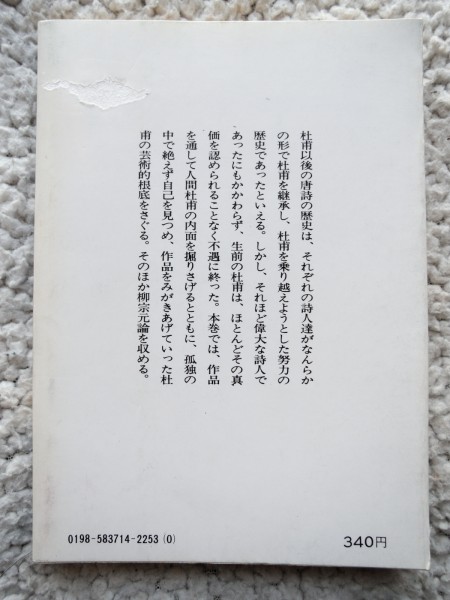 杜甫以後の唐詩の歴史は、それぞれの詩人達がなんらか
の形で杜甫を継承し、杜甫を乗り越えようとした努力の
歴史であったといえる。しかし、それほど偉大な詩人で
あったにもかかわらず、生前の杜甫は、ほとんどその真
価を認められることなく不遇に終った。本巻では、作品
を通して人間杜甫の内面を掘りさげるとともに、孤独の
中で絶えず自己を見つめ、作品をみがきあげていった杜
甫の芸術的根底をさぐる。そのほか柳宗元論を収める。
0198-583714-2253(0)
340円